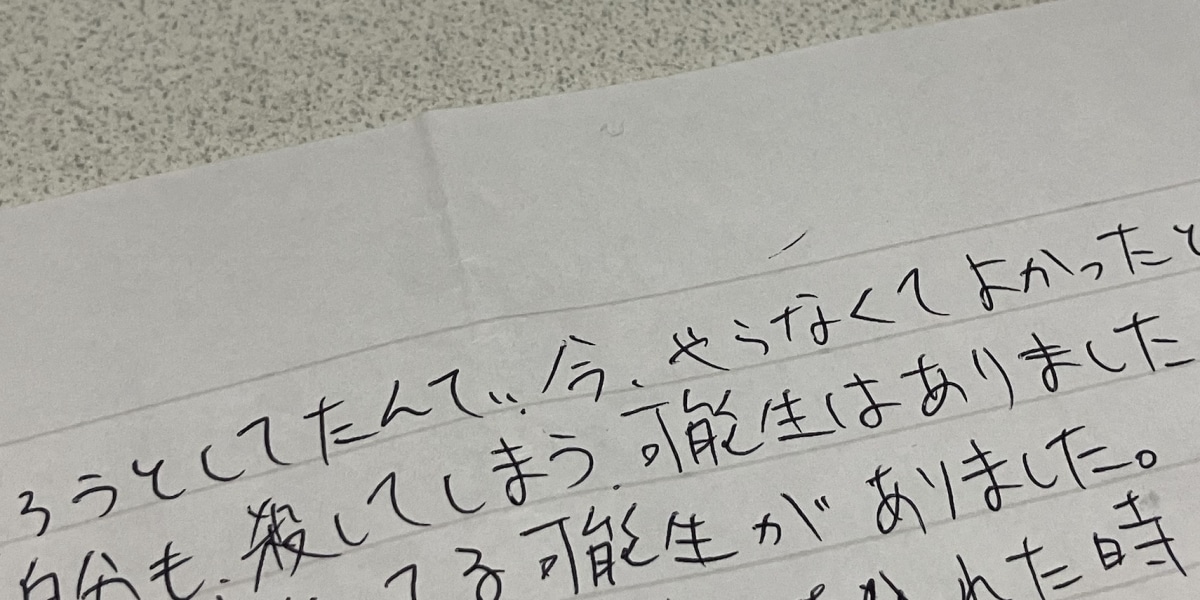 ろうとしてたんで、今、やらなくてよかったと
自分も、殺してしまう、可能生はありました
てる可能生がありました。
かれた時